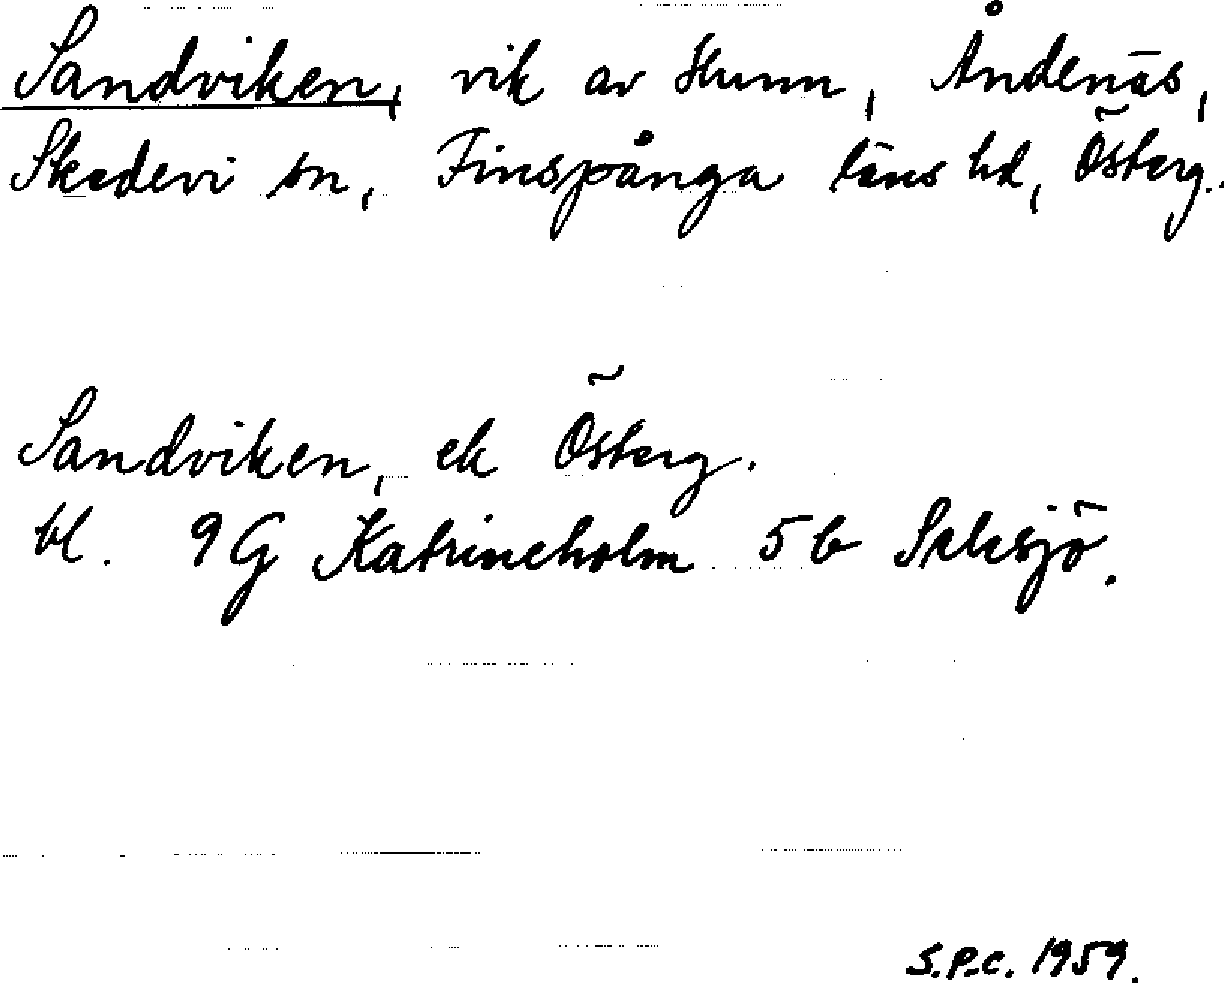 Sandviken, vik av Hunn, Åndenäs,
Skedevi sn, Finspånga läns hd, Österg.
Sandviken, ek Österg.
bl. 9G Katrineholm 5b Seksjö.
S.P.C. 1959.